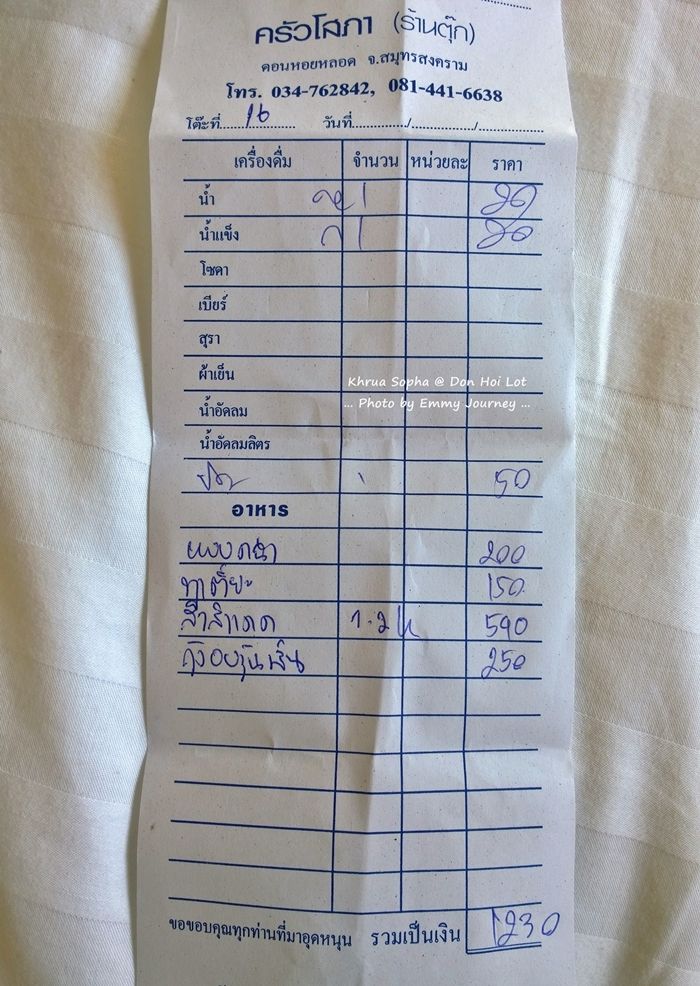 ครัวโสภา (ร้านตุ๊ก)
ดอนหอยหลอด จ.สมุทรสงคราม
โทร. 034-762842, 081-441-6638
โต๊ะที่ 16 วันที่ / /
เครื่องดื่ม จำนวน หน่วยละ ราคา
น้ำ 1 20
น้ำแข็ง 1 20
โซดา
เบียร์
สุรา
ผ้าเย็น
น้ำอัดลม
น้ำอัดลมลิตร
50
อาหาร
200
150
สำลีแดด 1.2 540
กุ้งอบวุ้นเส้น 250
ขอขอบคุณทุกท่านที่มาอุดหนุน รวมเป็นเงิน 1230
Khrua Sopha @ Don Hoi Lot
... Photo by Emmy Journey ...